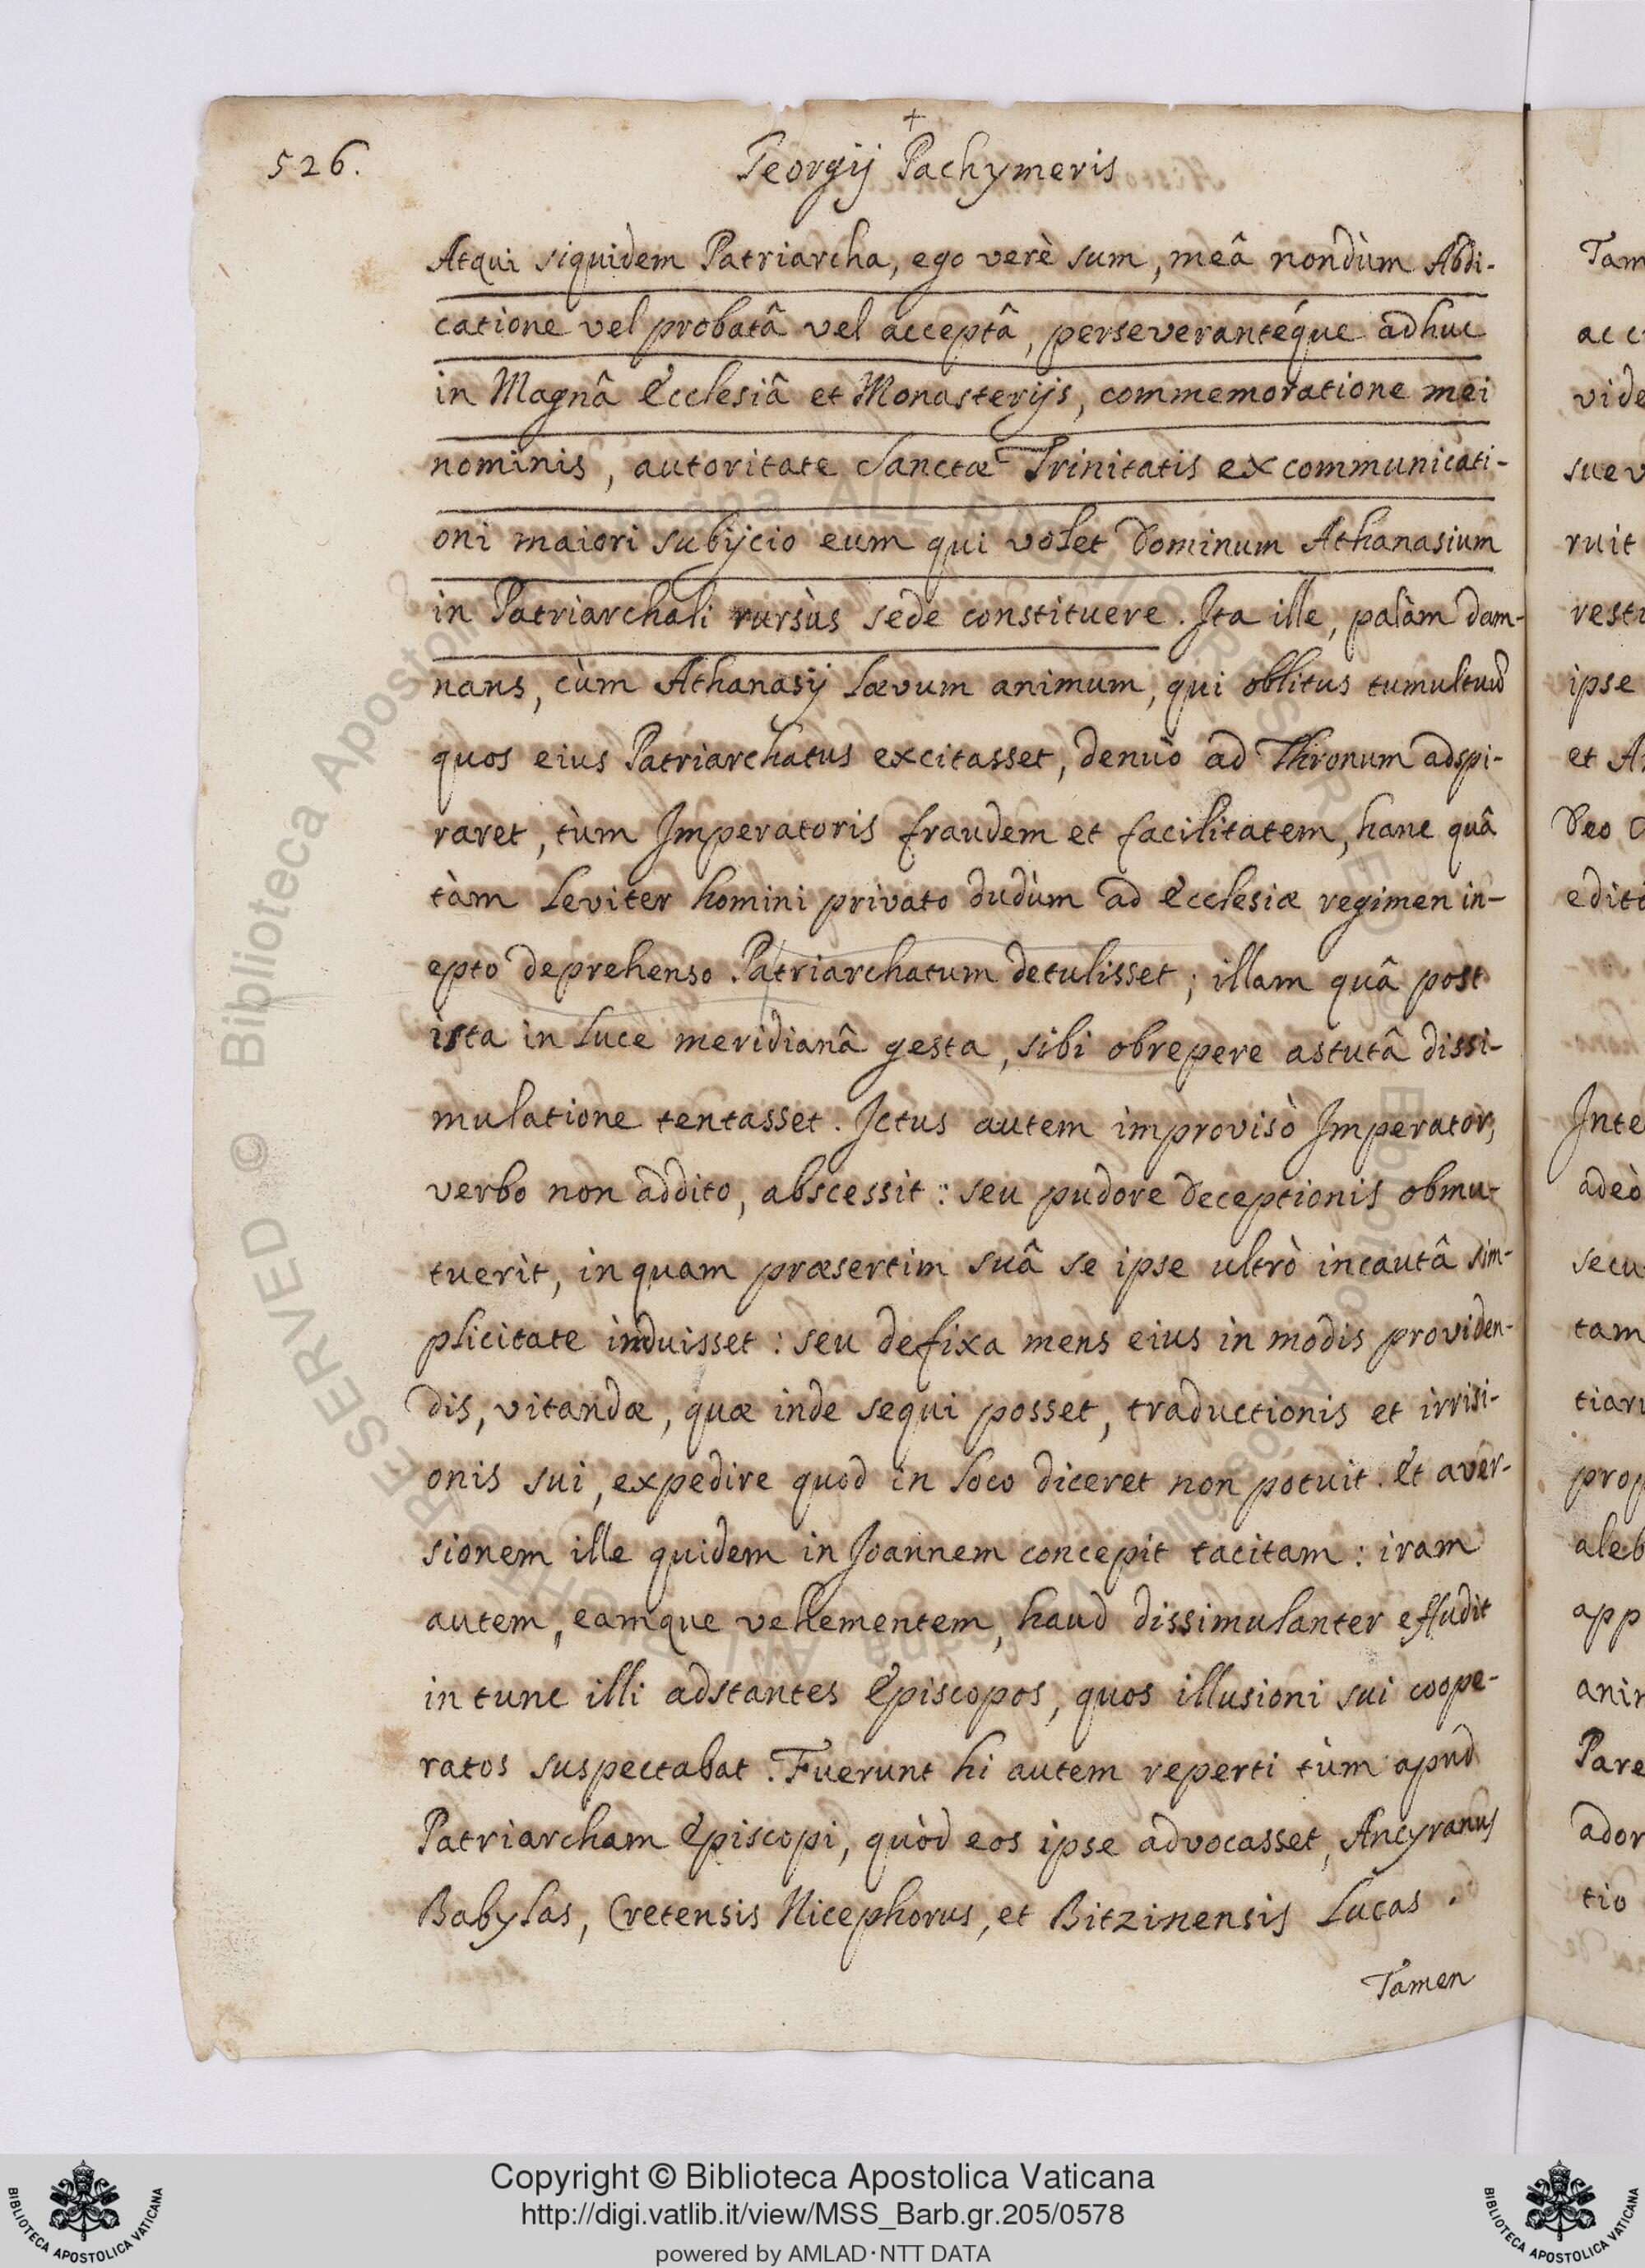 526.
+
Georgij Pachymeris
Atqui siquidem Patriarcha, ego verè sum, meâ nondùm Abdi-
catione vel probatâ vel acceptâ, perseveranteque adhuc
in Magnâ Ecclesiâ et Monasterijs, commemoratione mei
nominis, autoritate Sanctæ Trinitatis excommunicati-
oni maiori subijcio eum qui volet Dominum Athanasium
in Patriarchali rursùs sede constituere. Ita ille, palàm dam-
nans, cùm Athanasij lævum animum, qui oblitus tumultuũ
quos eius Patriarchatus excitasset, denuò ad Thronum adspi-
raret, tùm Imperatoris fraudem et facilitatem, hanc quâ
tàm leviter homini privato dudùm ad Ecclesiæ regimen in-
epto deprehenso Patriarchatum detulisset; illam quâ post
ista in luce meridianâ gesta, sibi obrepere astutâ dissi-
mulatione tentasset. Ictus autem improvisò Imperator,
verbo non addito, abscessit: seu pudore deceptionis obmu-
tuerit, in quam præsertim suâ se ipse ultrò incautâ sim-
plicitate induisset: seu defixa mens eius in modis providen-
dis, vitandæ, quæ inde sequi posset, traductionis et irrisi-
onis sui, expedire quod in loco diceret non potuit. Et aver-
sionem ille quidem in Joannem concepit tacitam: iram
autem, eamque vehementem, haud dissimulanter effudit
in tunc illi adstantes Episcopos, quos illusioni sui coope-
ratos suspectabat. Fuerunt hi autem reperti tùm apud
Patriarcham Episcopi, quòd eos ipse advocasset, Ancyranus
Babylas, Cretensis Nicephorus, et Bitzinensis Lucas.
Tamen
Tam
vide
ruit
ipse
et
Deo
adeò
tam
Copyright © Biblioteca Apostolica Vaticana
http://digi.vatlib.it/view/MSS_Barb.gr.205/0578
powered by AMLAD·NTT DATA
BIBLIOTECA APOSTOLICA VATICANA
BIBLIOTECA APOSTOLICA VATICANA